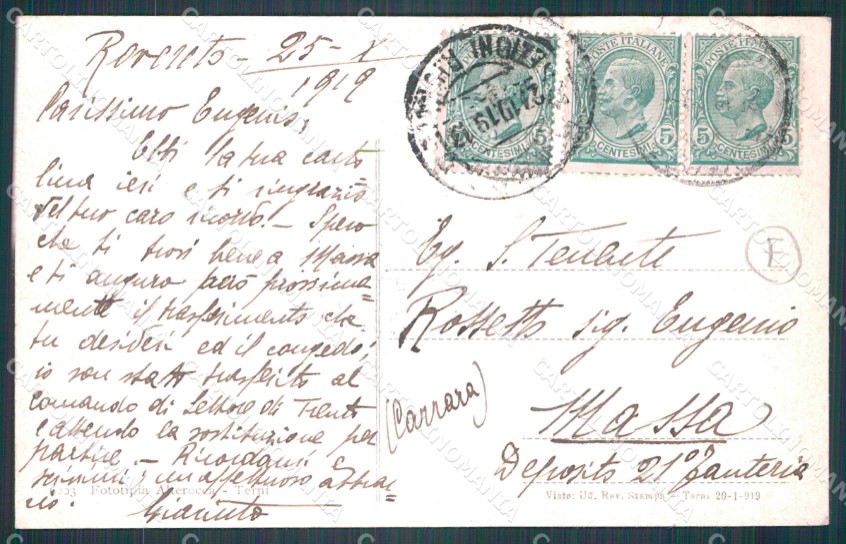 Rovereto - 25 - X
1919
Carissimo Eugenio,
Ebbi la tua carto
lina ieri e ti ringrazio
del tuo caro ricordo. - Spero
che ti trovi bene a Massa
e ti auguro però prossima=
mente il trasferimento che
tu desideri ed il congedo;
io son stato trasferito al
comando di Settore di Trento
e attendo la sostituzione per
partire - Ricordami e
scrivimi; un affettuoso abbrac=
cio.
Fototipia Alterocca - Terni
POSTE ITALIANE
5 CENTESIMI 5
POSTE ITALIANE
5 CENTESIMI 5
Eg. S. Tenente
Rossetto sig. Eugenio
(Carrara)
Massa
Deposito 21º Fanteria
Visto: Uff. Rev. Stampa - Terni 20-1-919
E
CARTOLINOMANIA